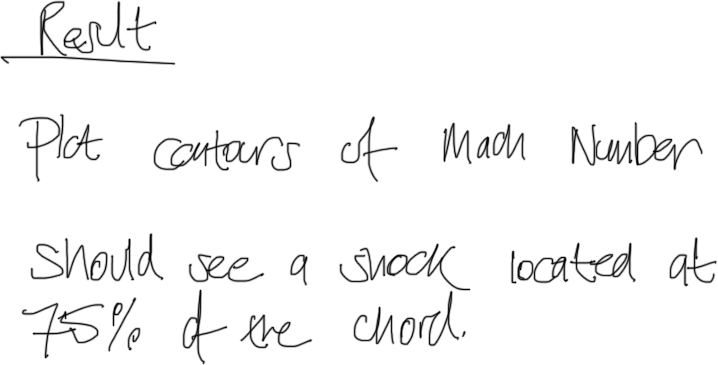 Result
Plot contours of Mach Number
Should see a shock located at
75% of the chord.